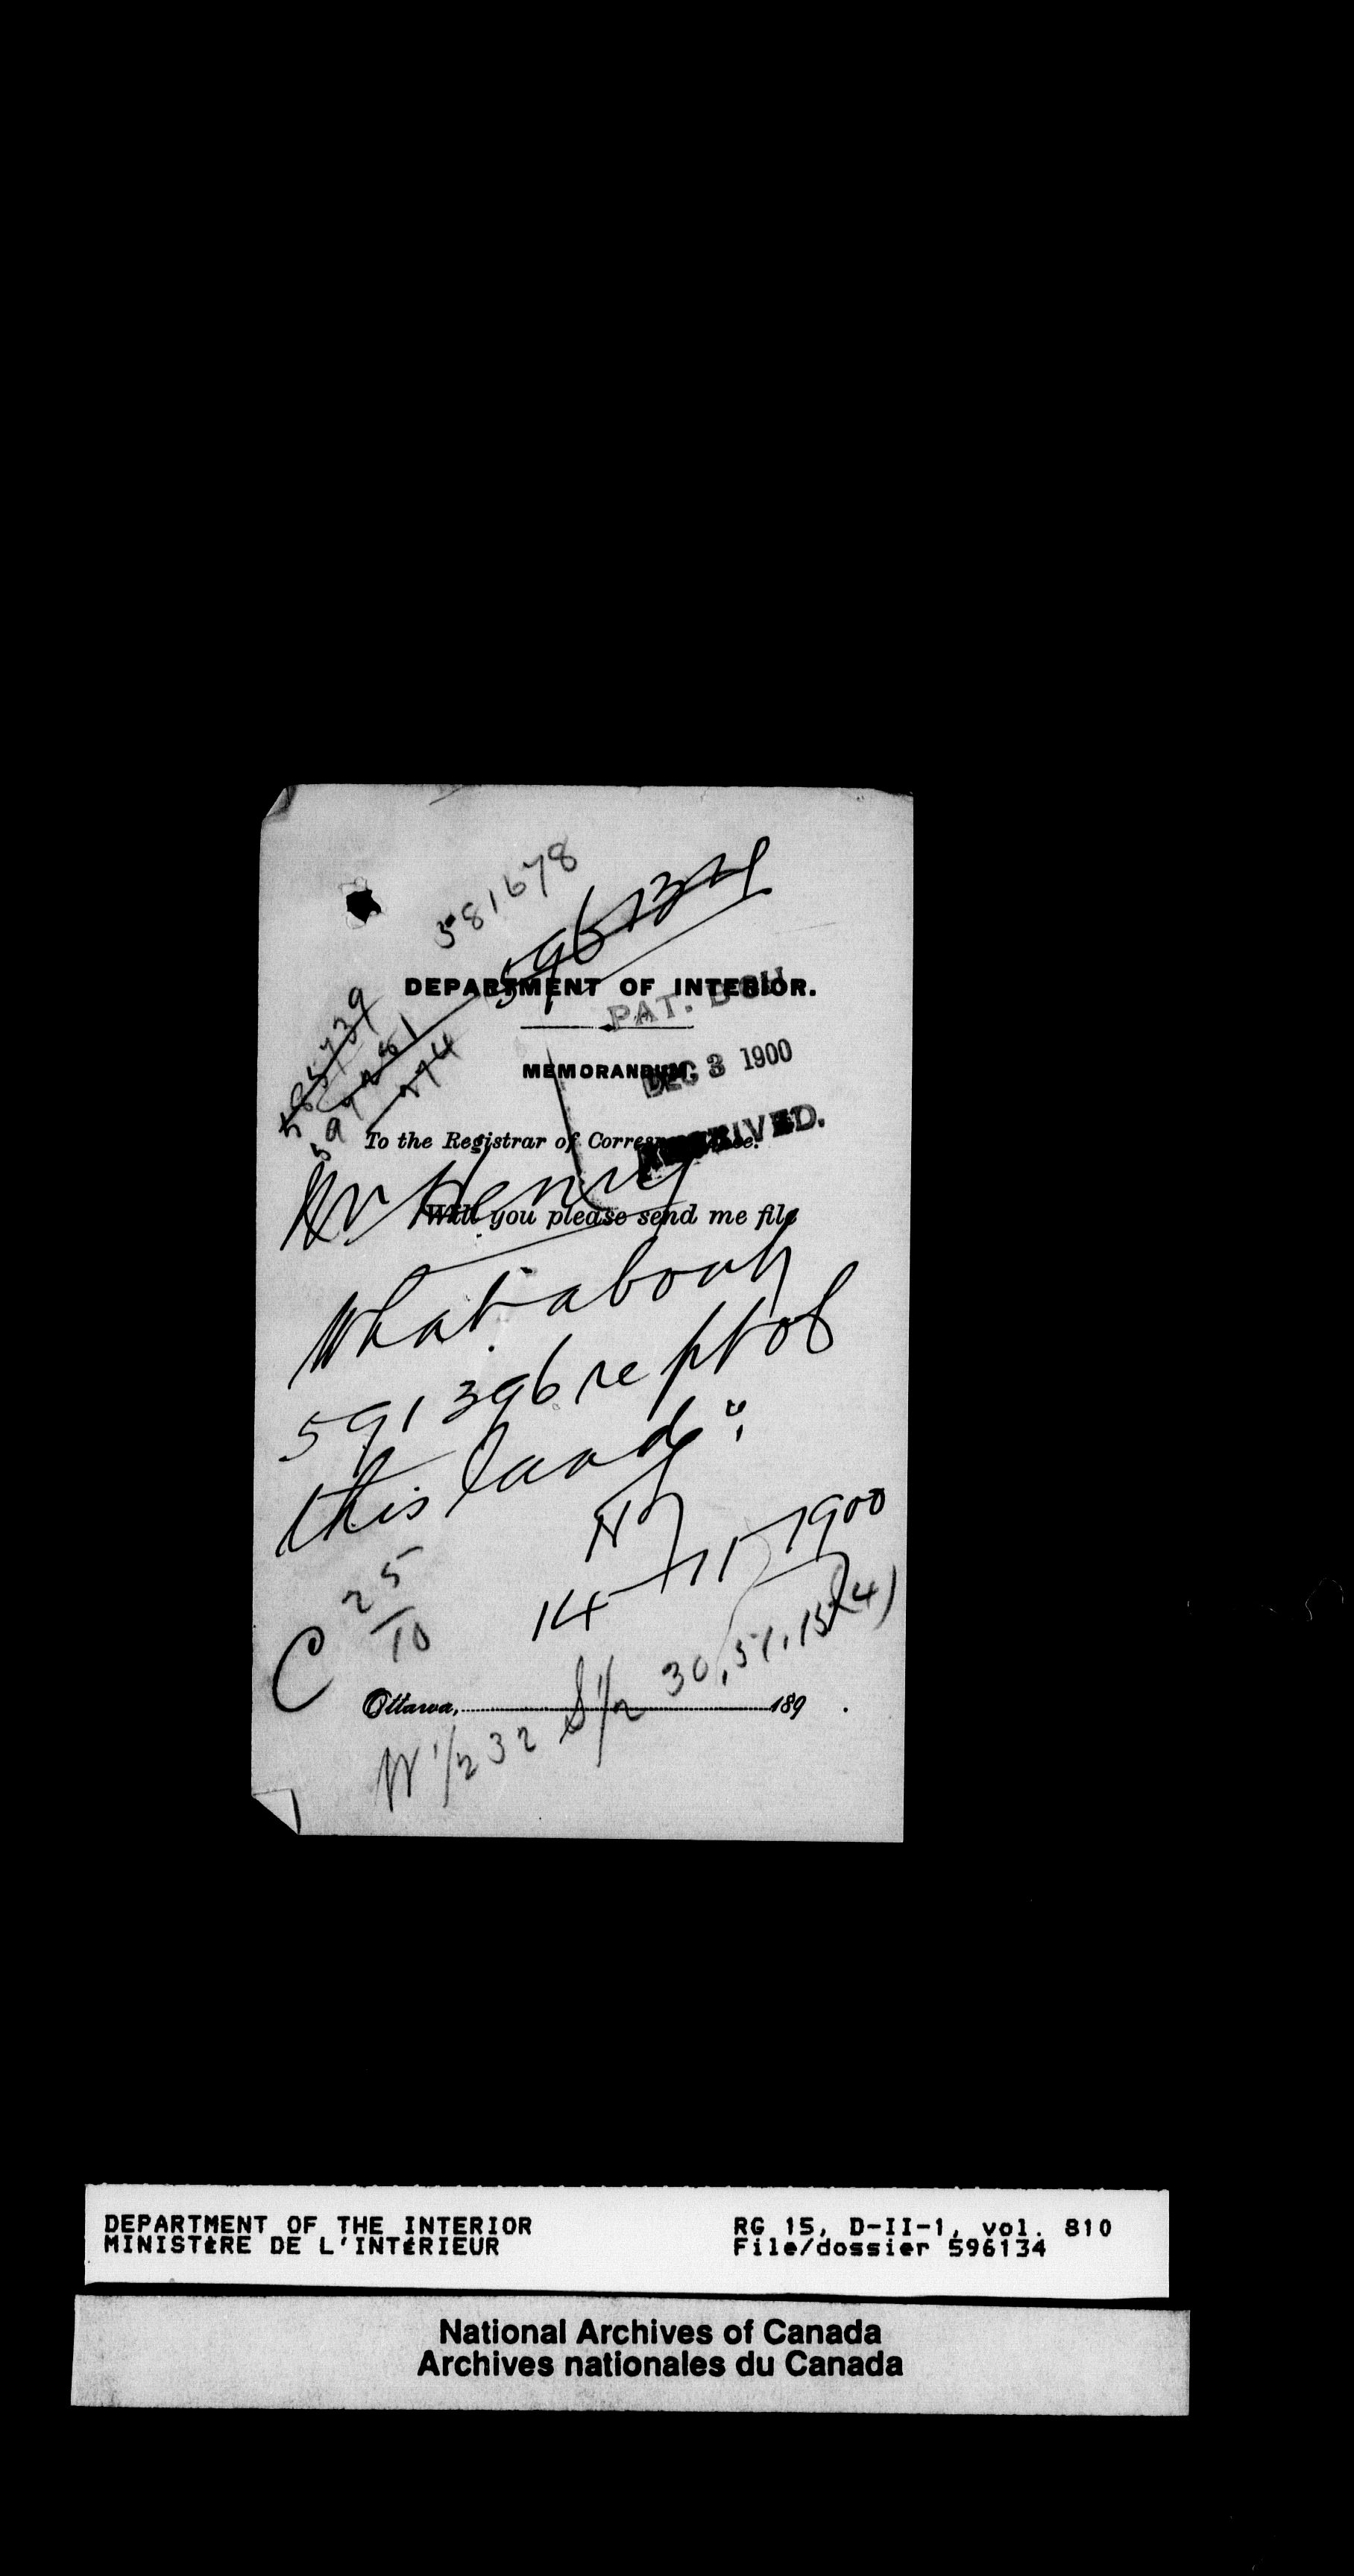 581678
596134
DEPARTMENT OF INTERIOR.
PAT.
585739
MEMORANDUM.
DEC 3 1900
To the Registrar of Correspondence.
RECEIVED.
Mr Henry
Will you please send me file
What about
591396 re pt of
this land?
14-11-1900
25/10
C
30, 51, 15
Ottawa, 189 .
W 1/2 32 S 1/2
DEPARTMENT OF THE INTERIOR
MINISTÈRE DE L'INTÉRIEUR
RG 15, D-II-1, vol. 810
File/dossier 596134
National Archives of Canada
Archives nationales du Canada